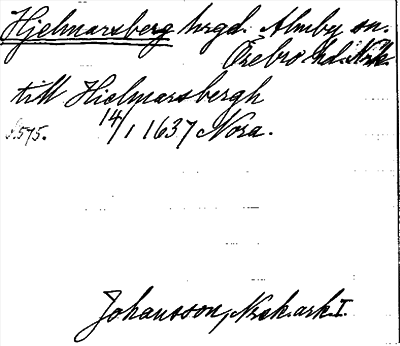 Hjelmarsberg hrgd. Almby sn.
Örebro hd. Närk.
till Hielmarsbergh
s. 575. 14/1 1637 Nora.
Johansson, Nork.ark I.